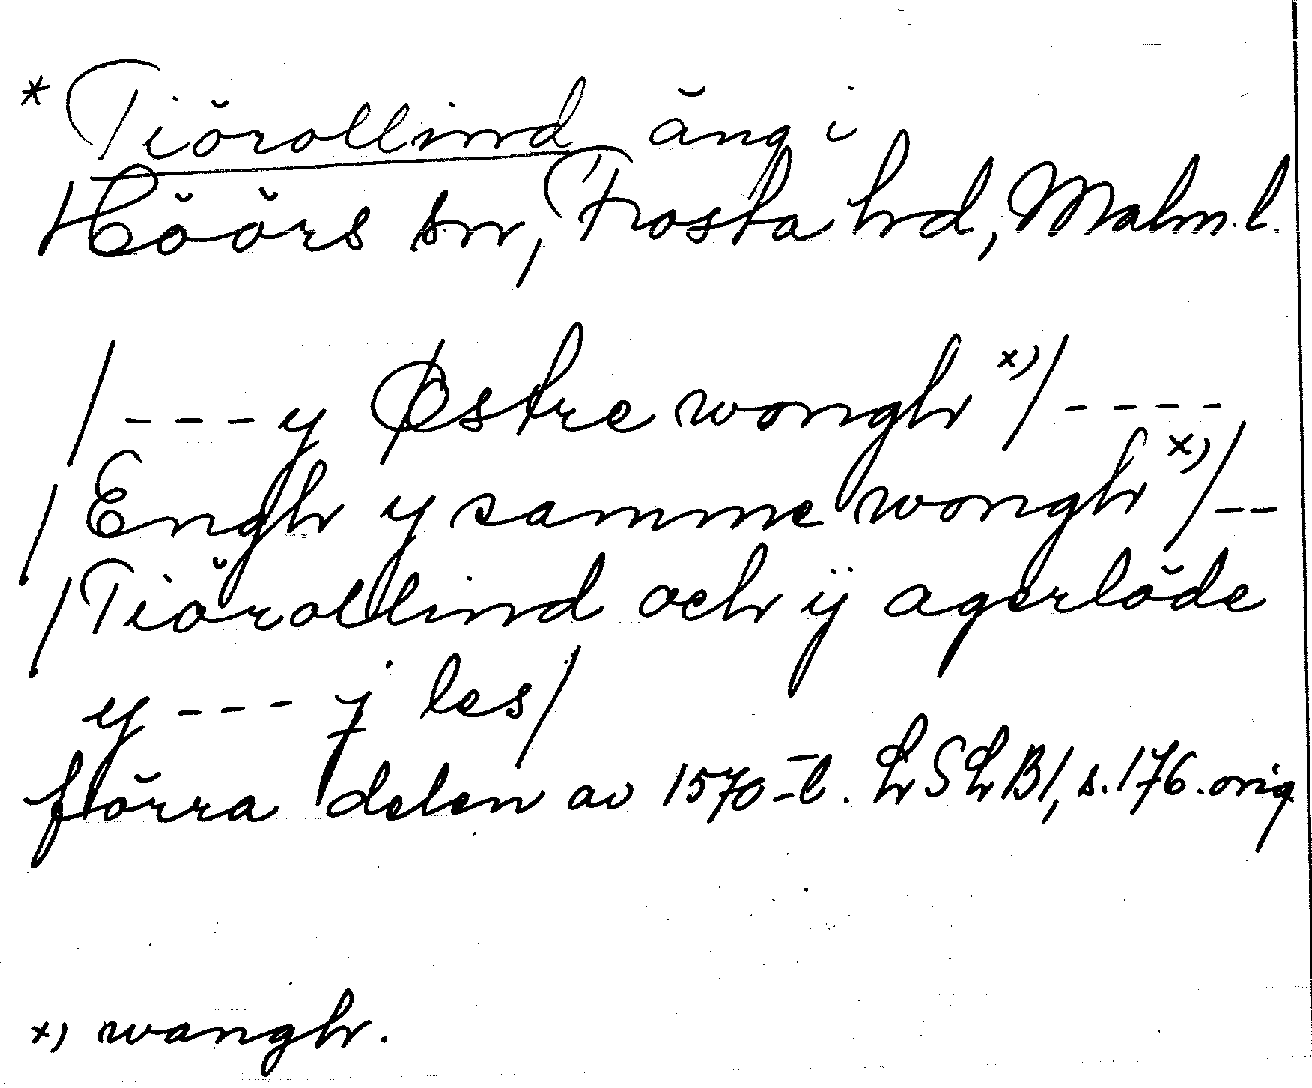 * Tiörollind, äng i
Höörs sn, Frosta hd, Malm.l.
/---y Østre wongh x)/----
/Engh y samme wongh x)/--
/Tiörollind och ÿ agerlöde
y --- j les/
förra delen av 1570-t. LSLB1, s.176. orig
x) wangh.